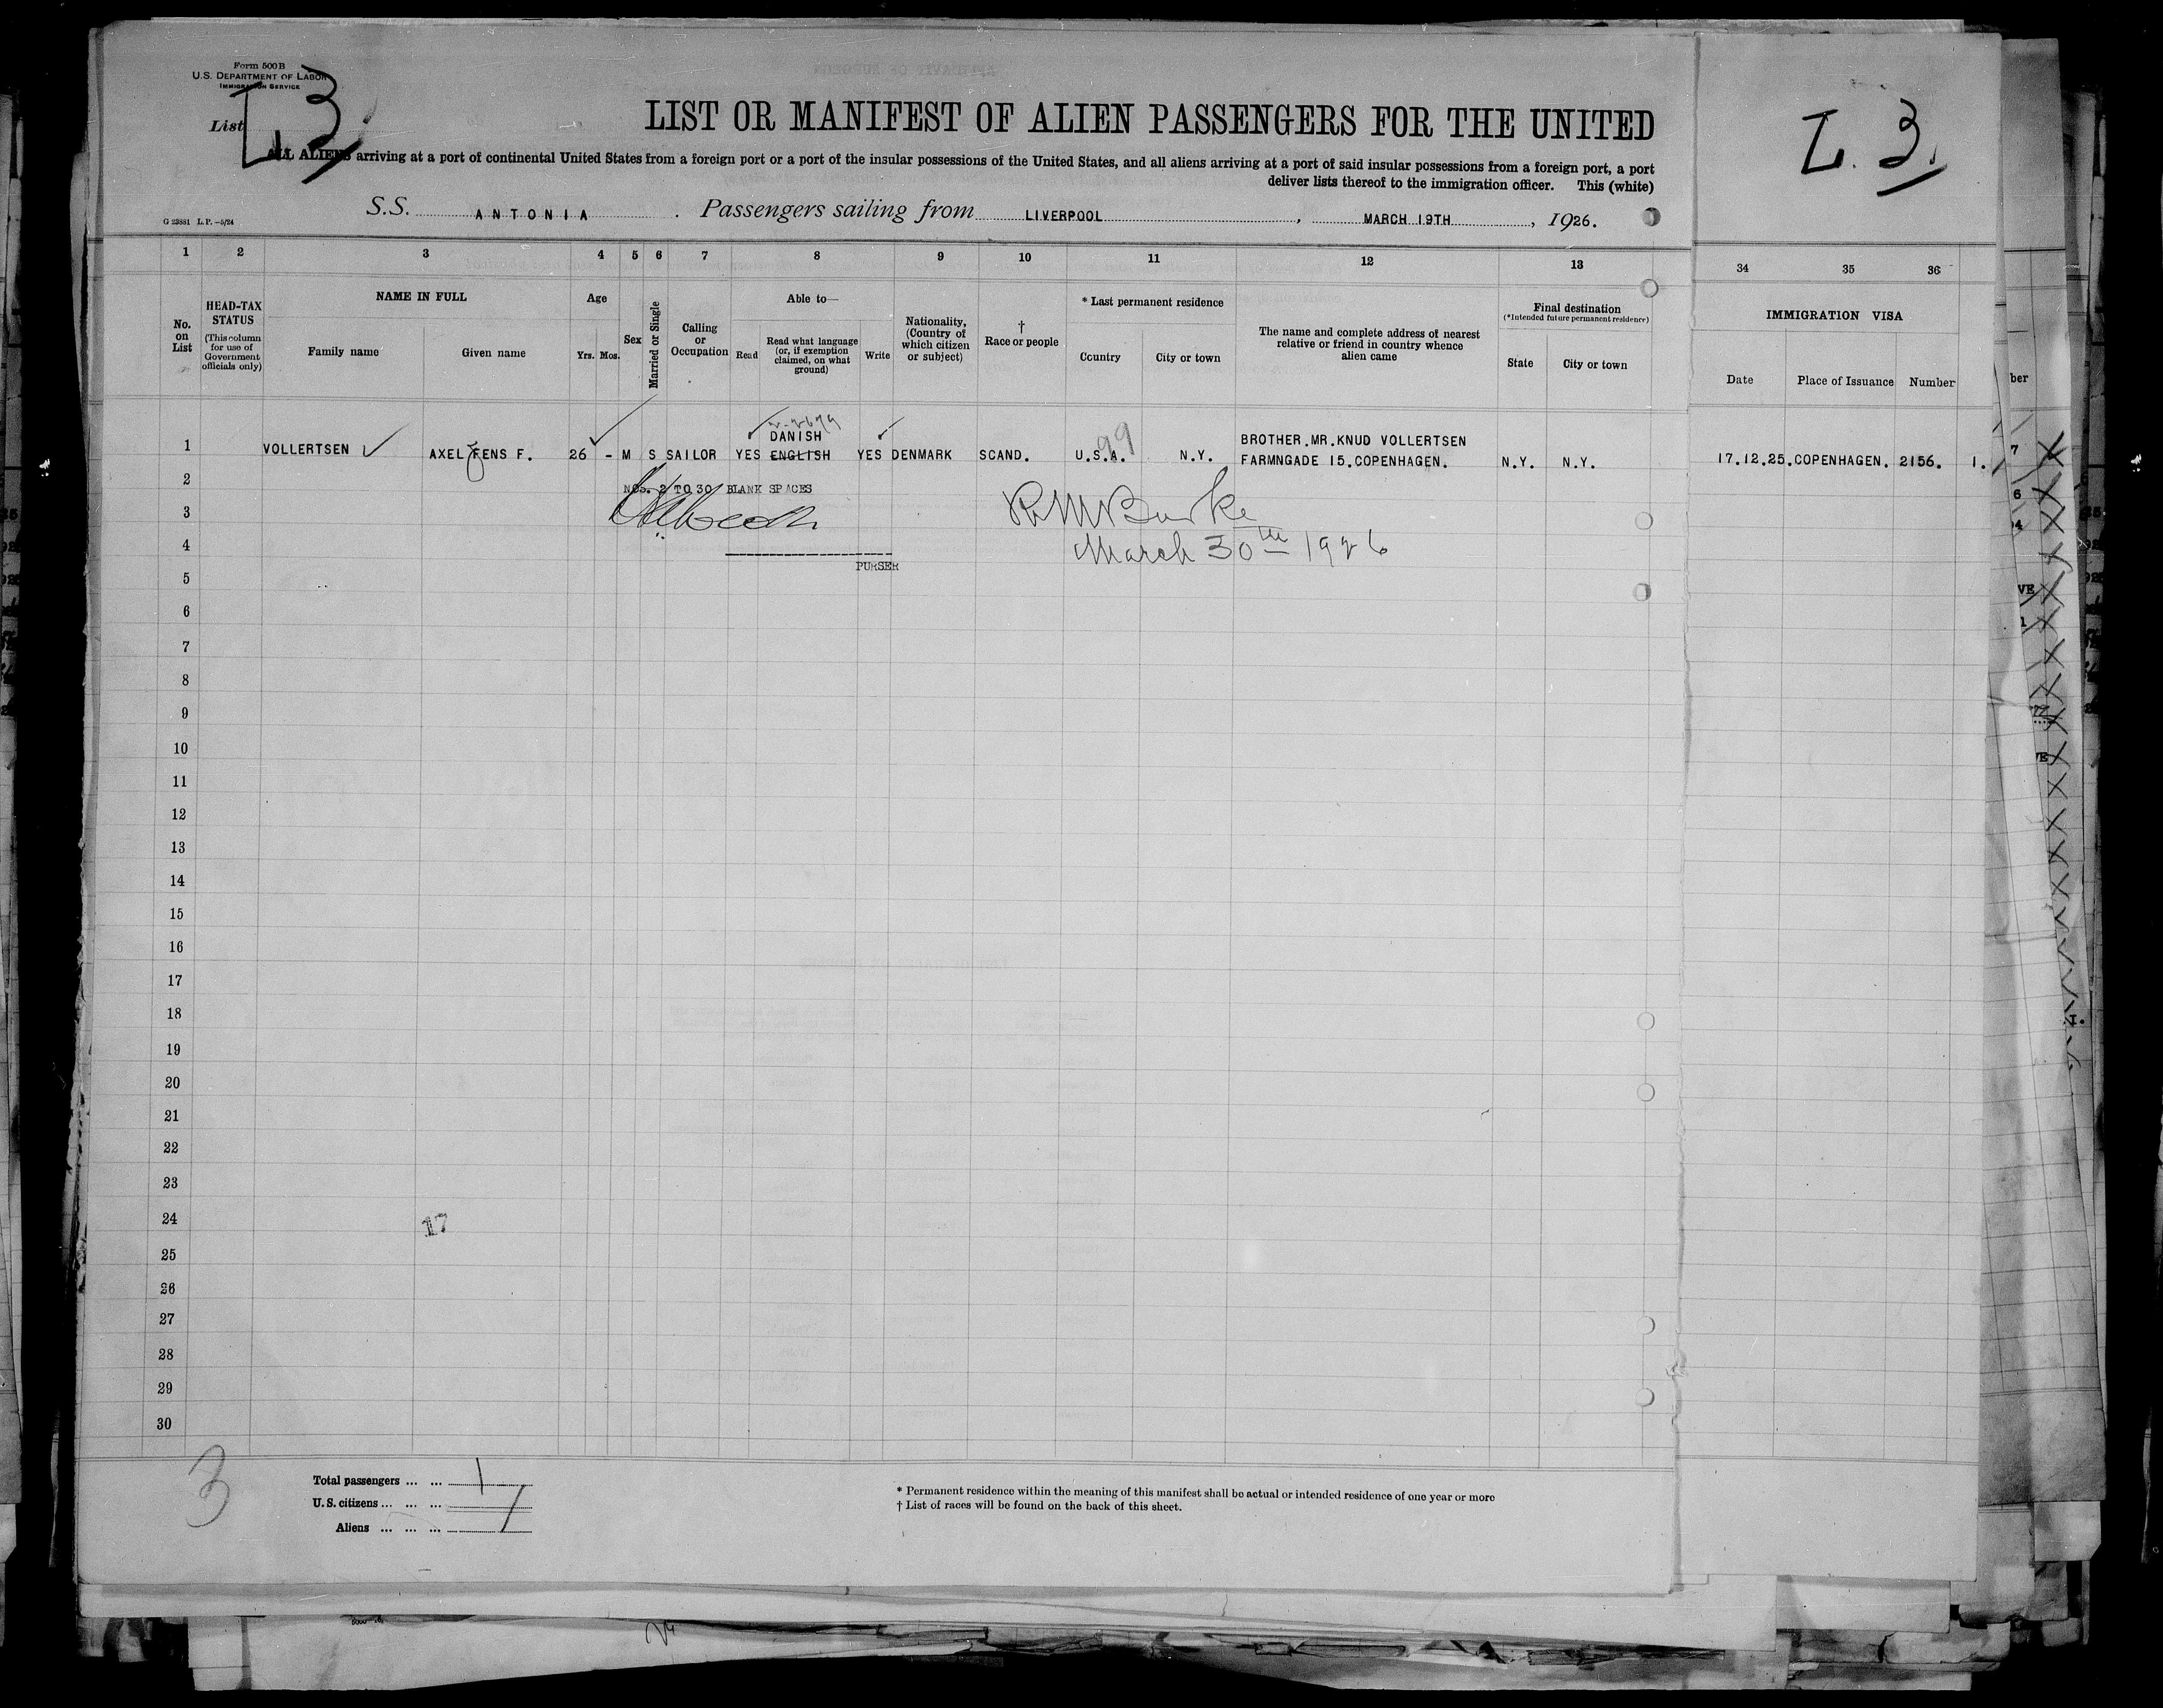 Form 500B
U.S. DEPARTMENT OF LABOR
IMMIGRATION SERVICE
List L.3.
L. 3.
LIST OR MANIFEST OF ALIEN PASSENGERS FOR THE UNITED
ALL ALIENS arriving at a port of continental United States from a foreign port or a port of the insular possessions of the United States, and all aliens arriving at a port of said insular possessions from a foreign port, a port
deliver lists thereof to the immigration officer. This (white)
G 23881 L.P.—5/24
S.S. ANTONIA. Passengers sailing from LIVERPOOL, MARCH 19TH, 1926.
1 2 3 4 5 6 7 8 9 10 11 12 13 34 35 36
No. on List
HEAD-TAX STATUS
(This column for use of Government officials only)
NAME IN FULL
Family name
Given name
Age
Yrs. Mos.
Sex
Married or Single
Calling or Occupation
Able to—
Read
Read what language (or, if exemption claimed, on what ground)
Write
Nationality, (Country of which citizen or subject)
† Race or people
* Last permanent residence
Country
City or town
The name and complete address of nearest relative or friend in country whence alien came
Final destination
(*Intended future permanent residence)
State
City or town
IMMIGRATION VISA
Date
Place of Issuance
Number
ber
DANISH BROTHER.MR.KNUD VOLLERTSEN
1 VOLLERTSEN AXEL JENS F. 26 - M S SAILOR YES ENGLISH YES DENMARK SCAND. U.S.A. N.Y. FARMNGADE 15.COPENHAGEN. N.Y. N.Y. 17.12.25. COPENHAGEN. 2156. 1.
99
2 NOS. 2 TO 30 BLANK SPACES
3 R M Burke
4 March 30th 1926
PURSER
5
6
7
8
9
10
11
12
13
14
15
16
17
18
19
20
21
22
23
24 17
25
26
27
28
29
30
3
Total passengers ... ... 1
U.S. citizens ... ... ...
Aliens ... ... ... 1
* Permanent residence within the meaning of this manifest shall be actual or intended residence of one year or more
† List of races will be found on the back of this sheet.